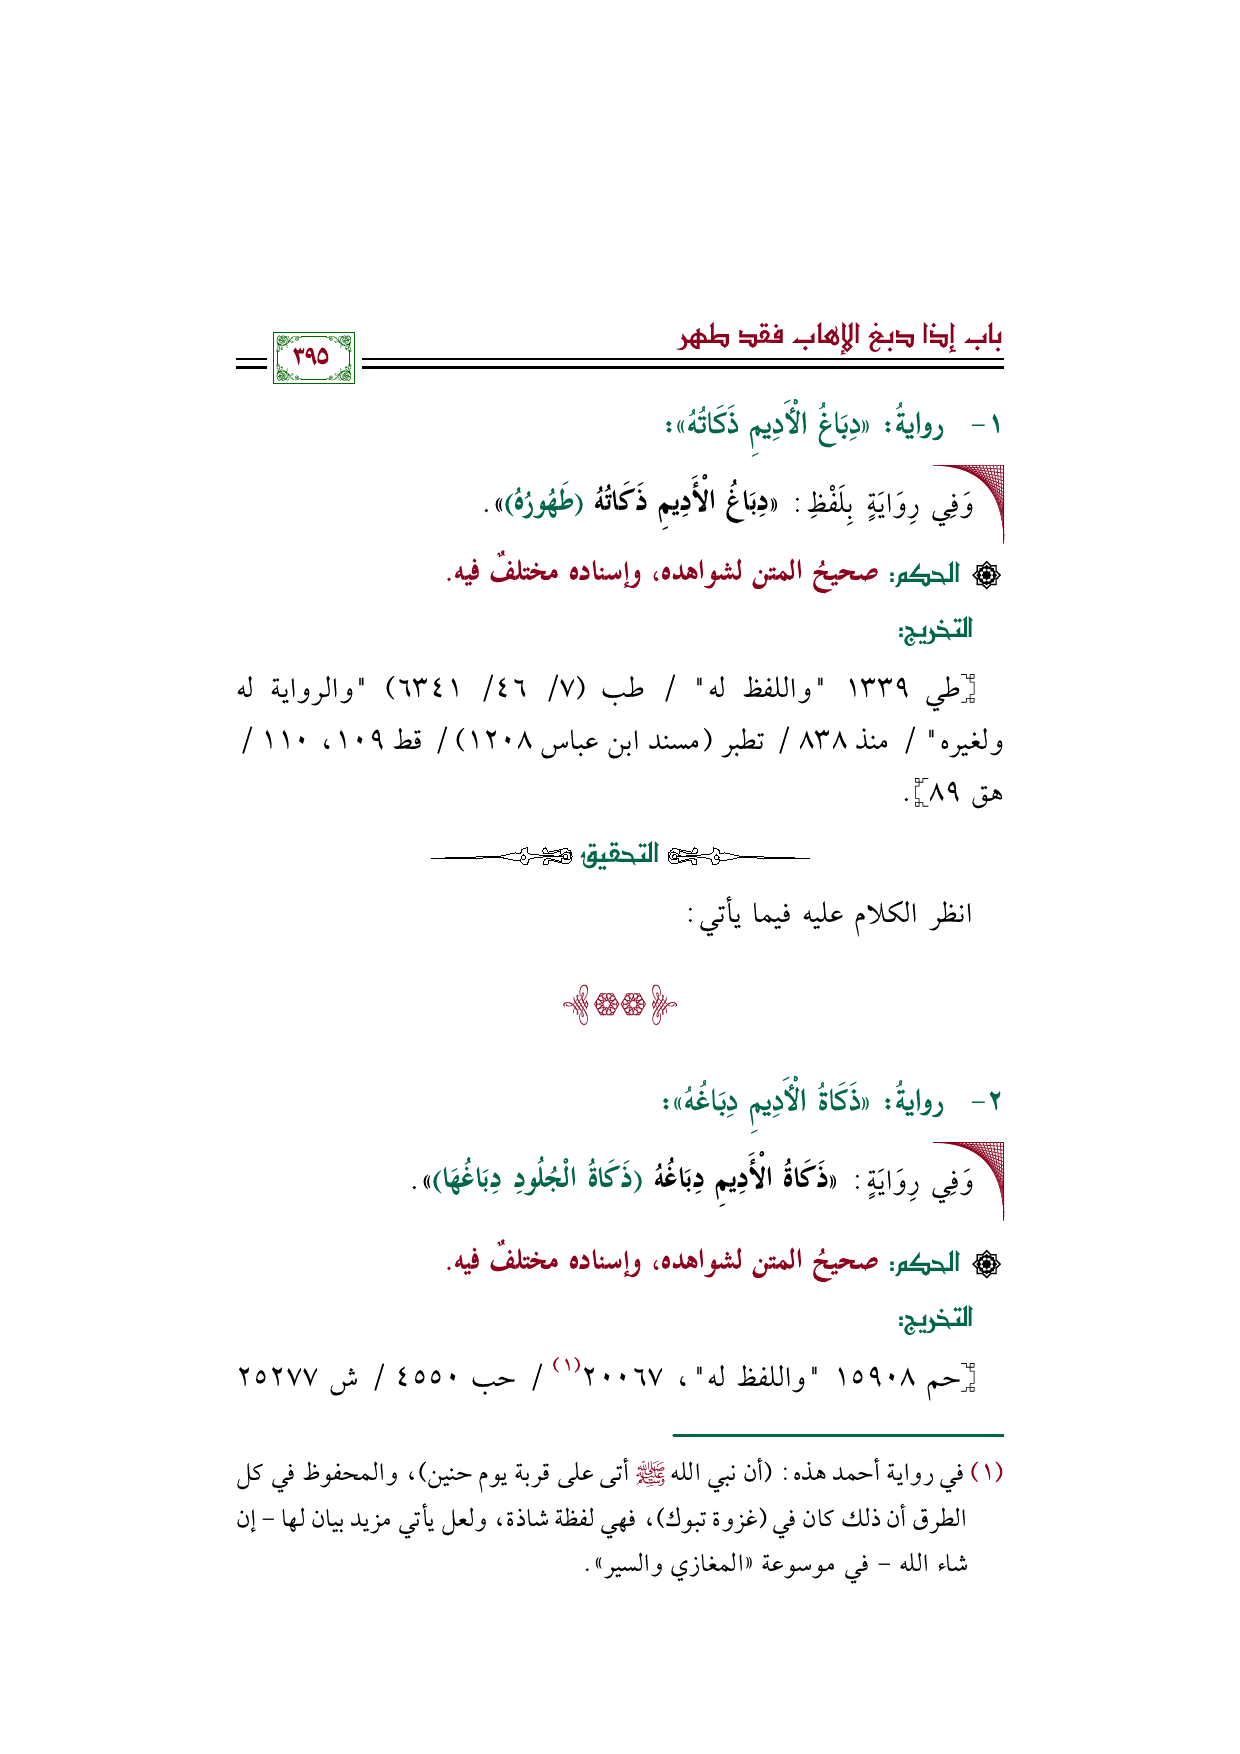 باب إذا دبغ الإهاب فقد طهر
٣٩٥
١- روايةُ: «دِبَاغُ الْأَدِيمِ ذَكَاتُهُ»:
وَفِي رِوَايَةٍ بِلَفْظِ: «دِبَاغُ الْأَدِيمِ ذَكَاتُهُ (طَهُورُهُ)».
الحكم: صحيحُ المتن لشواهده، وإسناده مختلفٌ فيه.
التخريج:
[طي ١٣٣٩ "واللفظ له" / طب (٧/ ٤٦/ ٦٣٤١) "والرواية له
ولغيره" / منذ ٨٣٨ / تطبر (مسند ابن عباس ١٢٠٨) / قط ١٠٩، ١١٠ /
هق ٨٩].
التحقيق
انظر الكلام عليه فيما يأتي:
٢- روايةُ: «ذَكَاةُ الْأَدِيمِ دِبَاغُهُ»:
وَفِي رِوَايَةٍ: «ذَكَاةُ الْأَدِيمِ دِبَاغُهُ (ذَكَاةُ الْجُلُودِ دِبَاغُهَا)».
الحكم: صحيحُ المتن لشواهده، وإسناده مختلفٌ فيه.
التخريج:
[حم ١٥٩٠٨ "واللفظ له"، ٢٠٠٦٧(١) / حب ٤٥٥٠ / ش ٢٥٢٧٧
(١) في رواية أحمد هذه: (أن نبي الله ﷺ أتى على قربة يوم حنين)، والمحفوظ في كل
الطرق أن ذلك كان في (غزوة تبوك)، فهي لفظة شاذة، ولعل يأتي مزيد بيان لها – إن
شاء الله – في موسوعة «المغازي والسير».